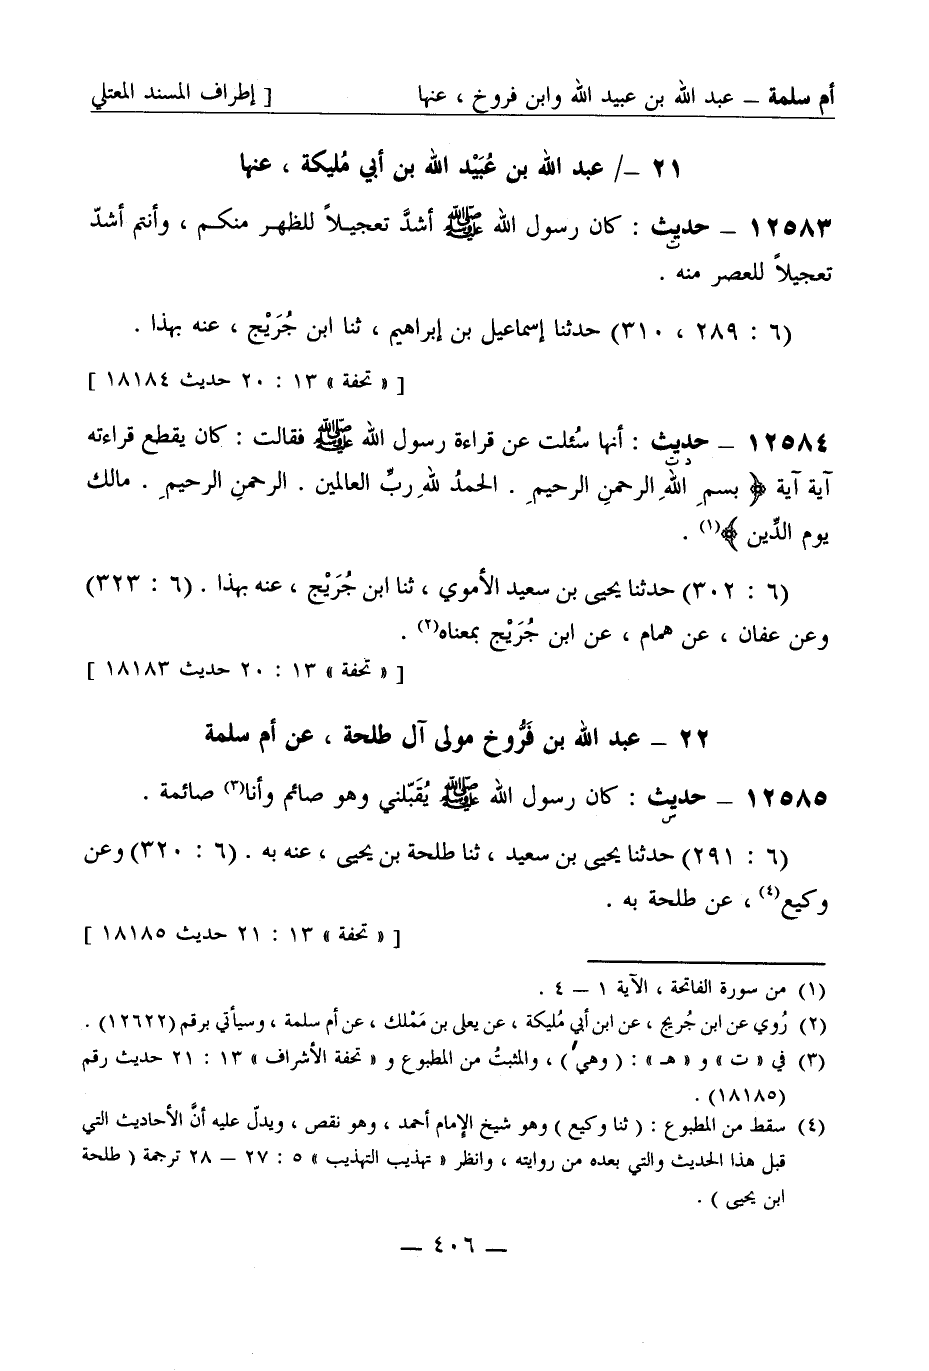 أم سلمة – عبد الله بن عبيد الله وابن فروخ ، عنها [ إطراف المسند المعتلي
٢١ –/ عبد الله بن عُبَيْد الله بن أبي مُليكة ، عنها
١٢٥٨٣ – حديث : كان رسول الله ﷺ أشدَّ تعجيلاً للظهر منكم ، وأنتم أشدّ
ت
تعجيلاً للعصر منه .
(٦ : ٢٨٩ ، ٣١٠) حدثنا إسماعيل بن إبراهيم ، ثنا ابن جُرَيْج ، عنه بهذا .
[ « تحفة » ١٣ : ٢٠ حديث ١٨١٨٤ ]
١٢٥٨٤ – حديث : أنها سُئلت عن قراءة رسول الله ﷺ فقالت : كان يقطع قراءته
د ت
آية آية ﴿ بسمِ اللهِ الرحمنِ الرحيمِ . الحمدُ للهِ ربِّ العالمين . الرحمنِ الرحيمِ . مالك
يوم الدِّين ﴾(١) .
(٦ : ٣٠٢) حدثنا يحيى بن سعيد الأموي ، ثنا ابن جُرَيْج ، عنه بهذا . (٦ : ٣٢٣)
وعن عفان ، عن همام ، عن ابن جُرَيْج بمعناه(٢) .
[ « تحفة » ١٣ : ٢٠ حديث ١٨١٨٣ ]
٢٢ – عبد الله بن فَرُّوخ مولى آل طلحة ، عن أم سلمة
١٢٥٨٥ – حديث : كان رسول الله ﷺ يُقبّلني وهو صائم وأنا(٣) صائمة .
س
(٦ : ٢٩١) حدثنا يحيى بن سعيد ، ثنا طلحة بن يحيى ، عنه به . (٦ : ٣٢٠) وعن
وكيع(٤) ، عن طلحة به .
[ « تحفة » ١٣ : ٢١ حديث ١٨١٨٥ ]
(١) من سورة الفاتحة ، الآية ١ – ٤ .
(٢) رُوي عن ابن جُريج ، عن ابن أبي مُليكة ، عن يعلى بن مَمْلك ، عن أم سلمة ، وسيأتي برقم (١٢٦٢٢) .
(٣) في « ت » و « هـ » : ( وهي ) ، والمثبتُ من المطبوع و « تحفة الأشراف » ١٣ : ٢١ حديث رقم
(١٨١٨٥) .
(٤) سقط من المطبوع : ( ثنا وكيع ) وهو شيخ الإمام أحمد ، وهو نقص ، ويدلّ عليه أنَّ الأحاديث التي
قبل هذا الحديث والتي بعده من روايته ، وانظر « تهذيب التهذيب » ٥ : ٢٧ – ٢٨ ترجمة ( طلحة
ابن يحيى ) .
– ٤٠٦ –